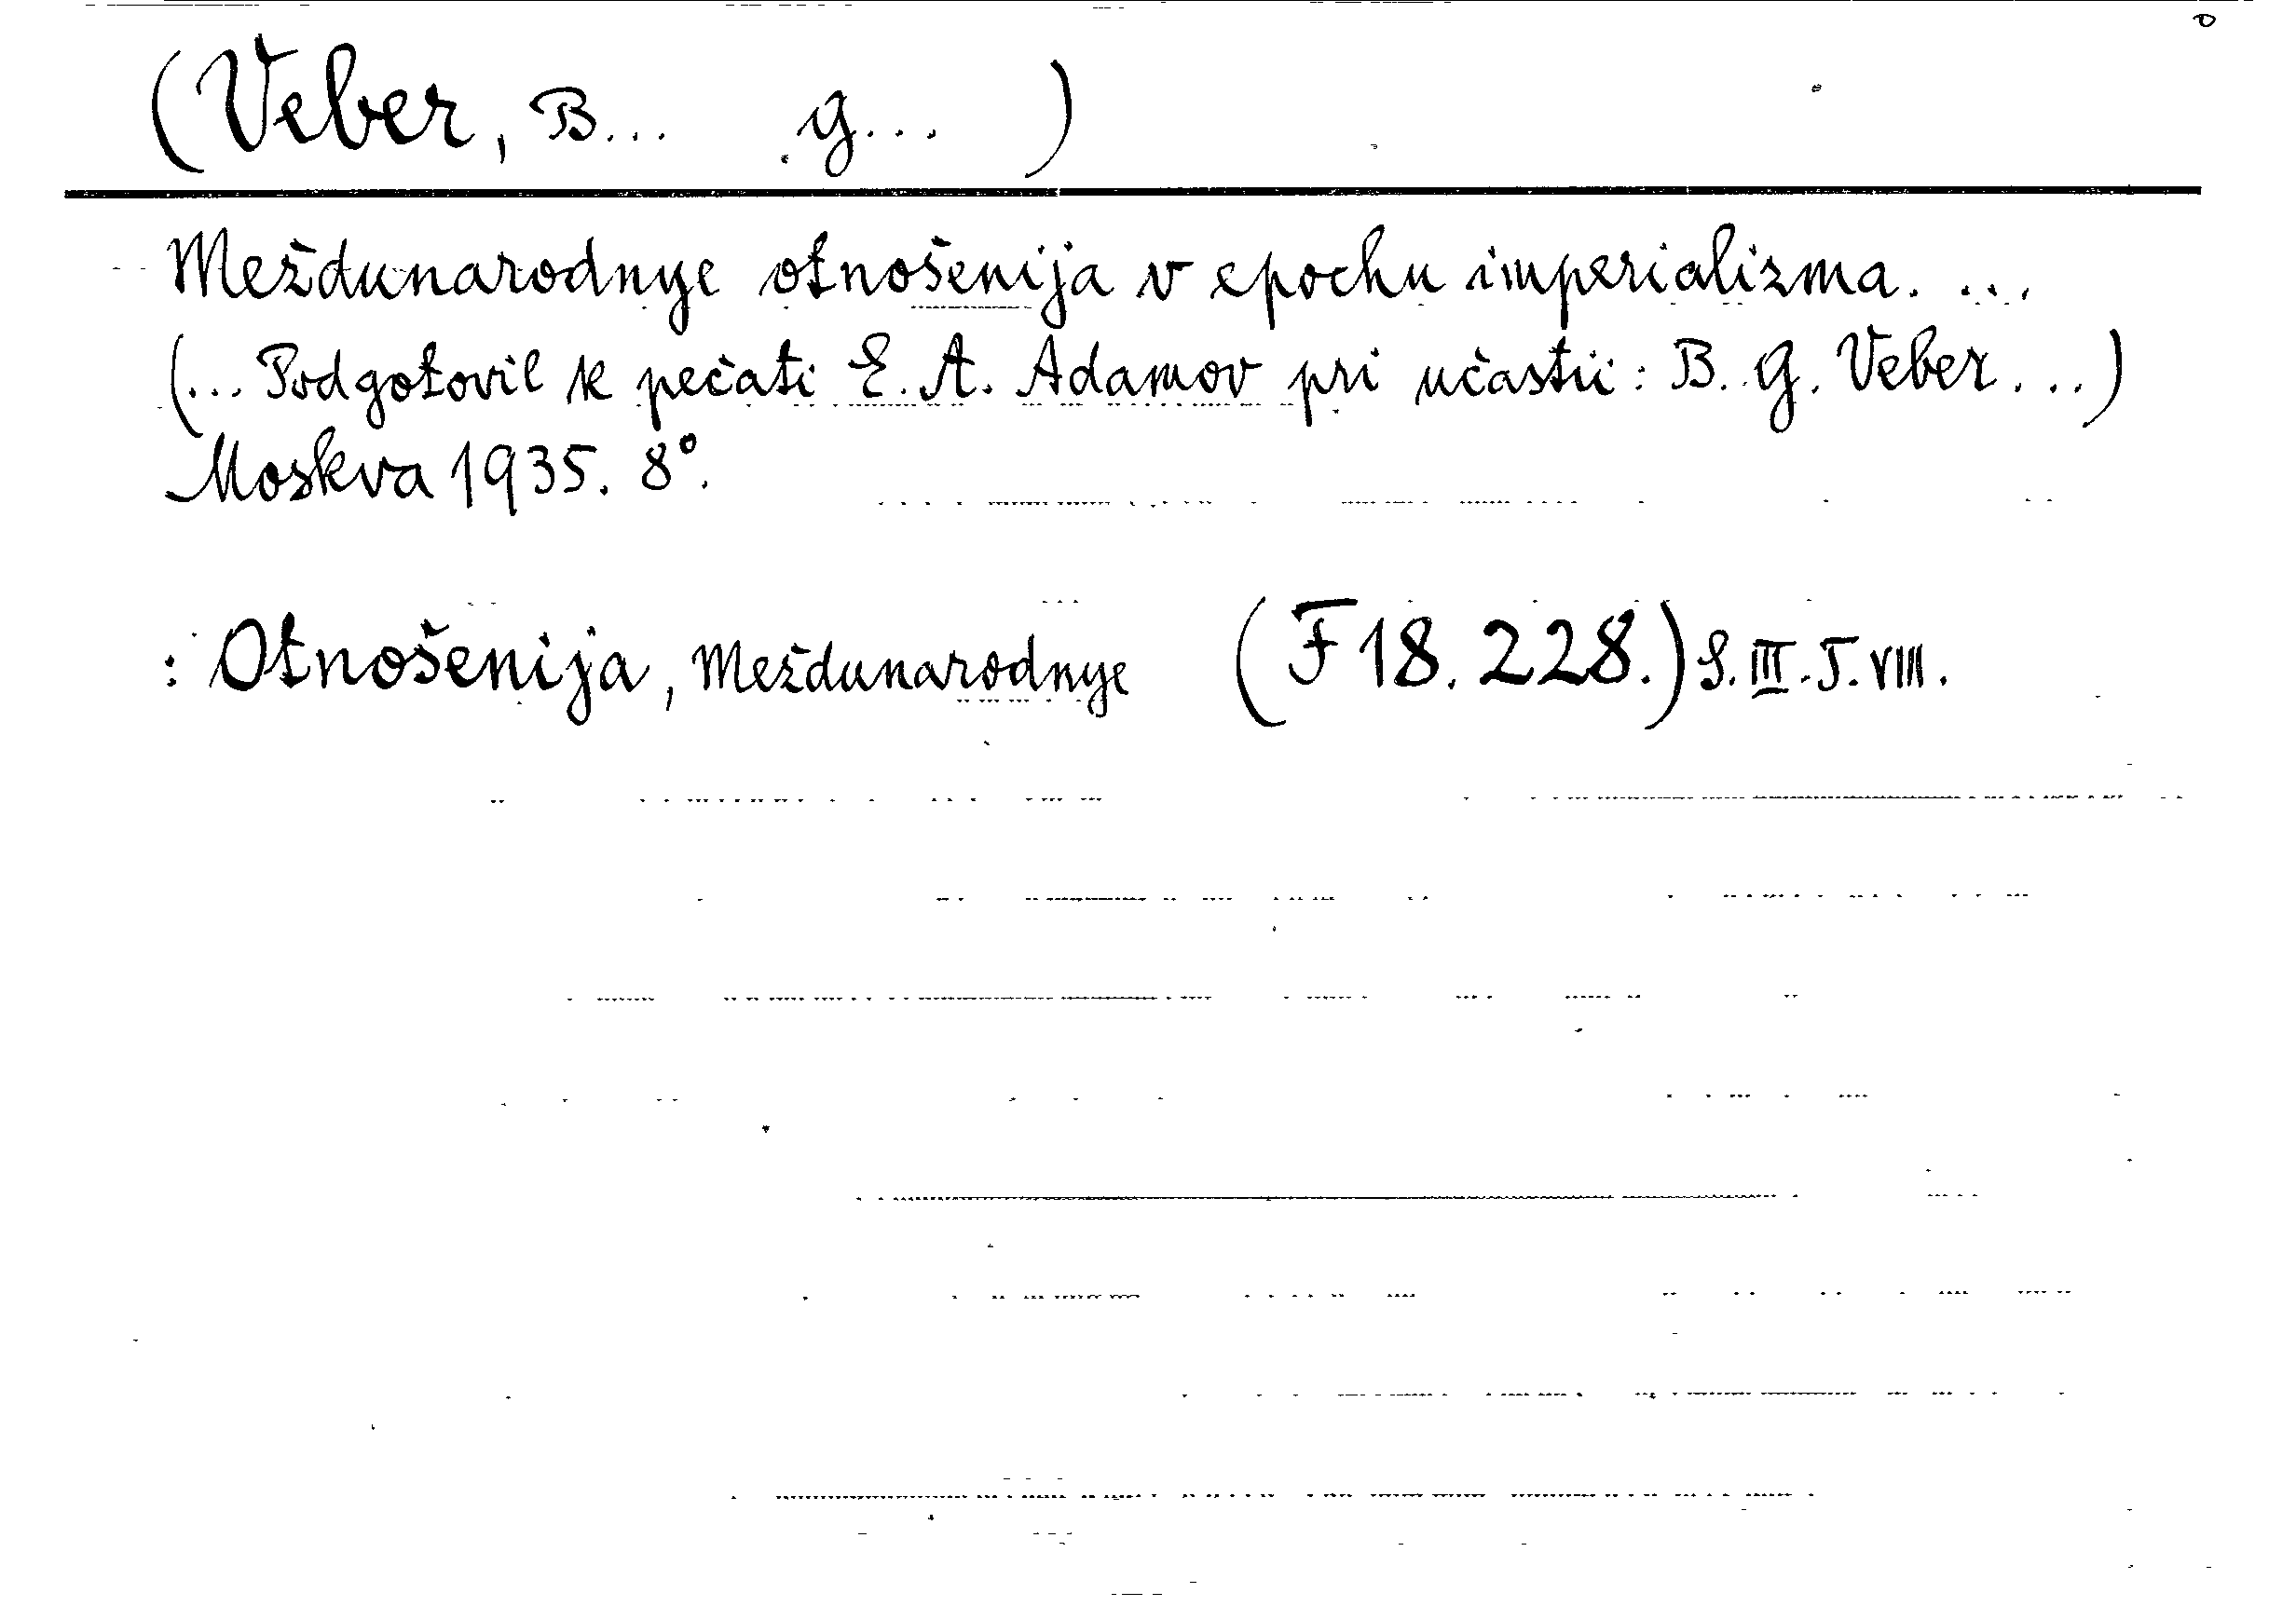 (Veber, B... G... )
Meždunarodnye otnošenija v epochu imperializma. ...
(... Podgotovil k pečati E. A. Adamov pri učastii: B. G. Veber...)
Moskva 1935. 8°.
: Otnošenija, Meždunarodnye (F 18. 228.) S. III. T. VIII.